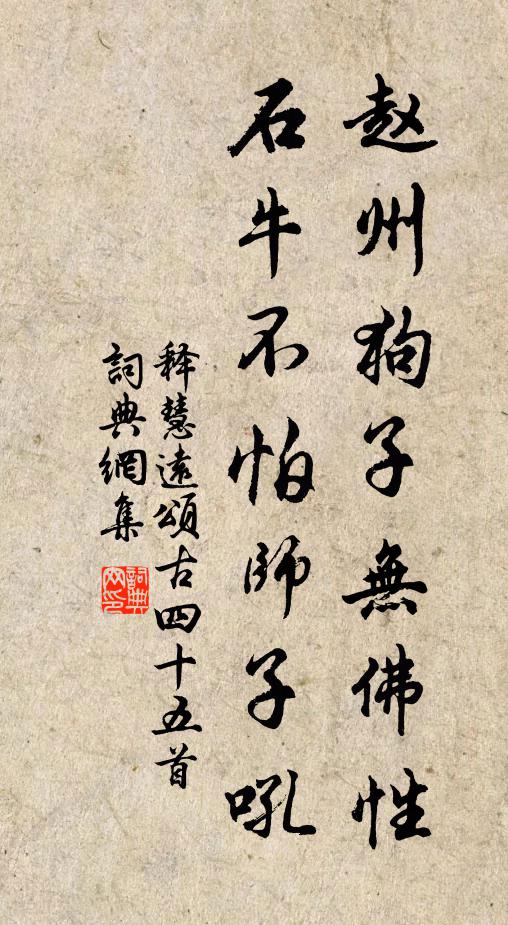 赵州狗子無佛性
石牛不怕師子吼
释慧遠頌古四十五首
詞典網集
詞典網印